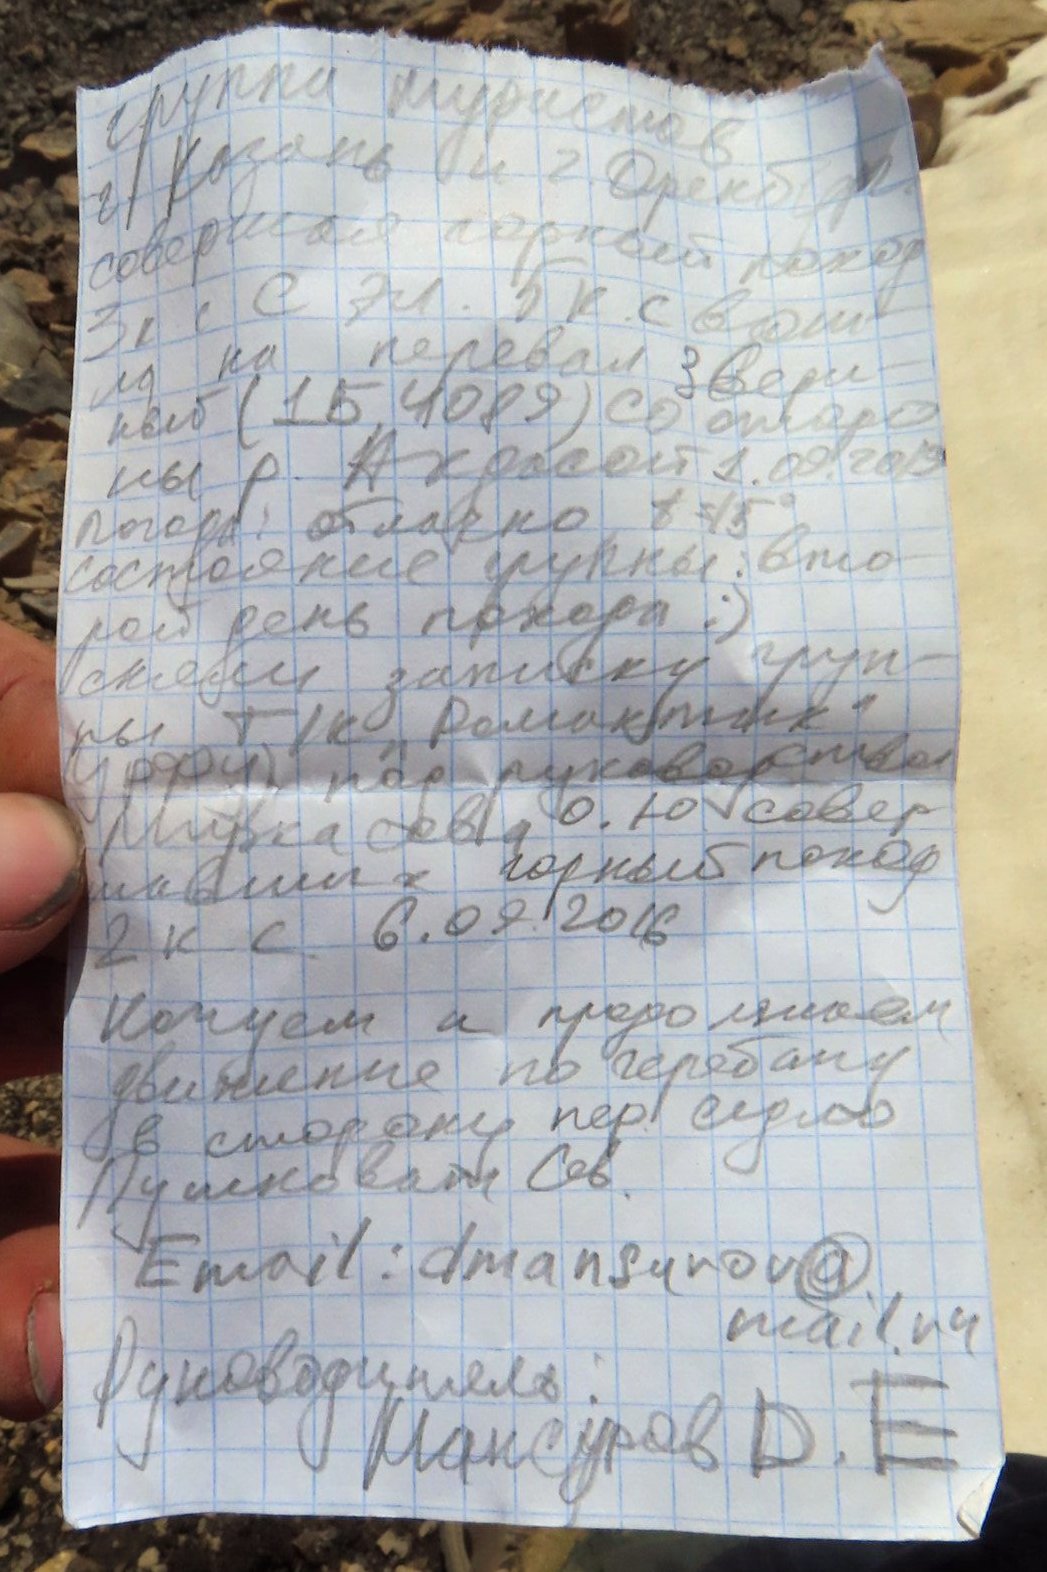 группа туристов
г. Казань и г. Оренбург.
совершая горный поход
3к.с с эл. 5к.с взош
ла на перевал Звери-
ный (1Б, 4089) со сторо
ны р. Аксай 1.09.2019
погода: облачно t=15°
состояние группы: вто-
рой день похода :)
сняли записку груп-
пы Т/к "Романтик"
(УрФУ) под руководством
О.Ю совер
шавших горный поход
2 к с. 6.09.2016
Ночуем и продолжаем
движение по гребню
в сторону пер седло
Сев.
Email: dmansurov@
mail.ru
Руководитель:
Мансуров D.E